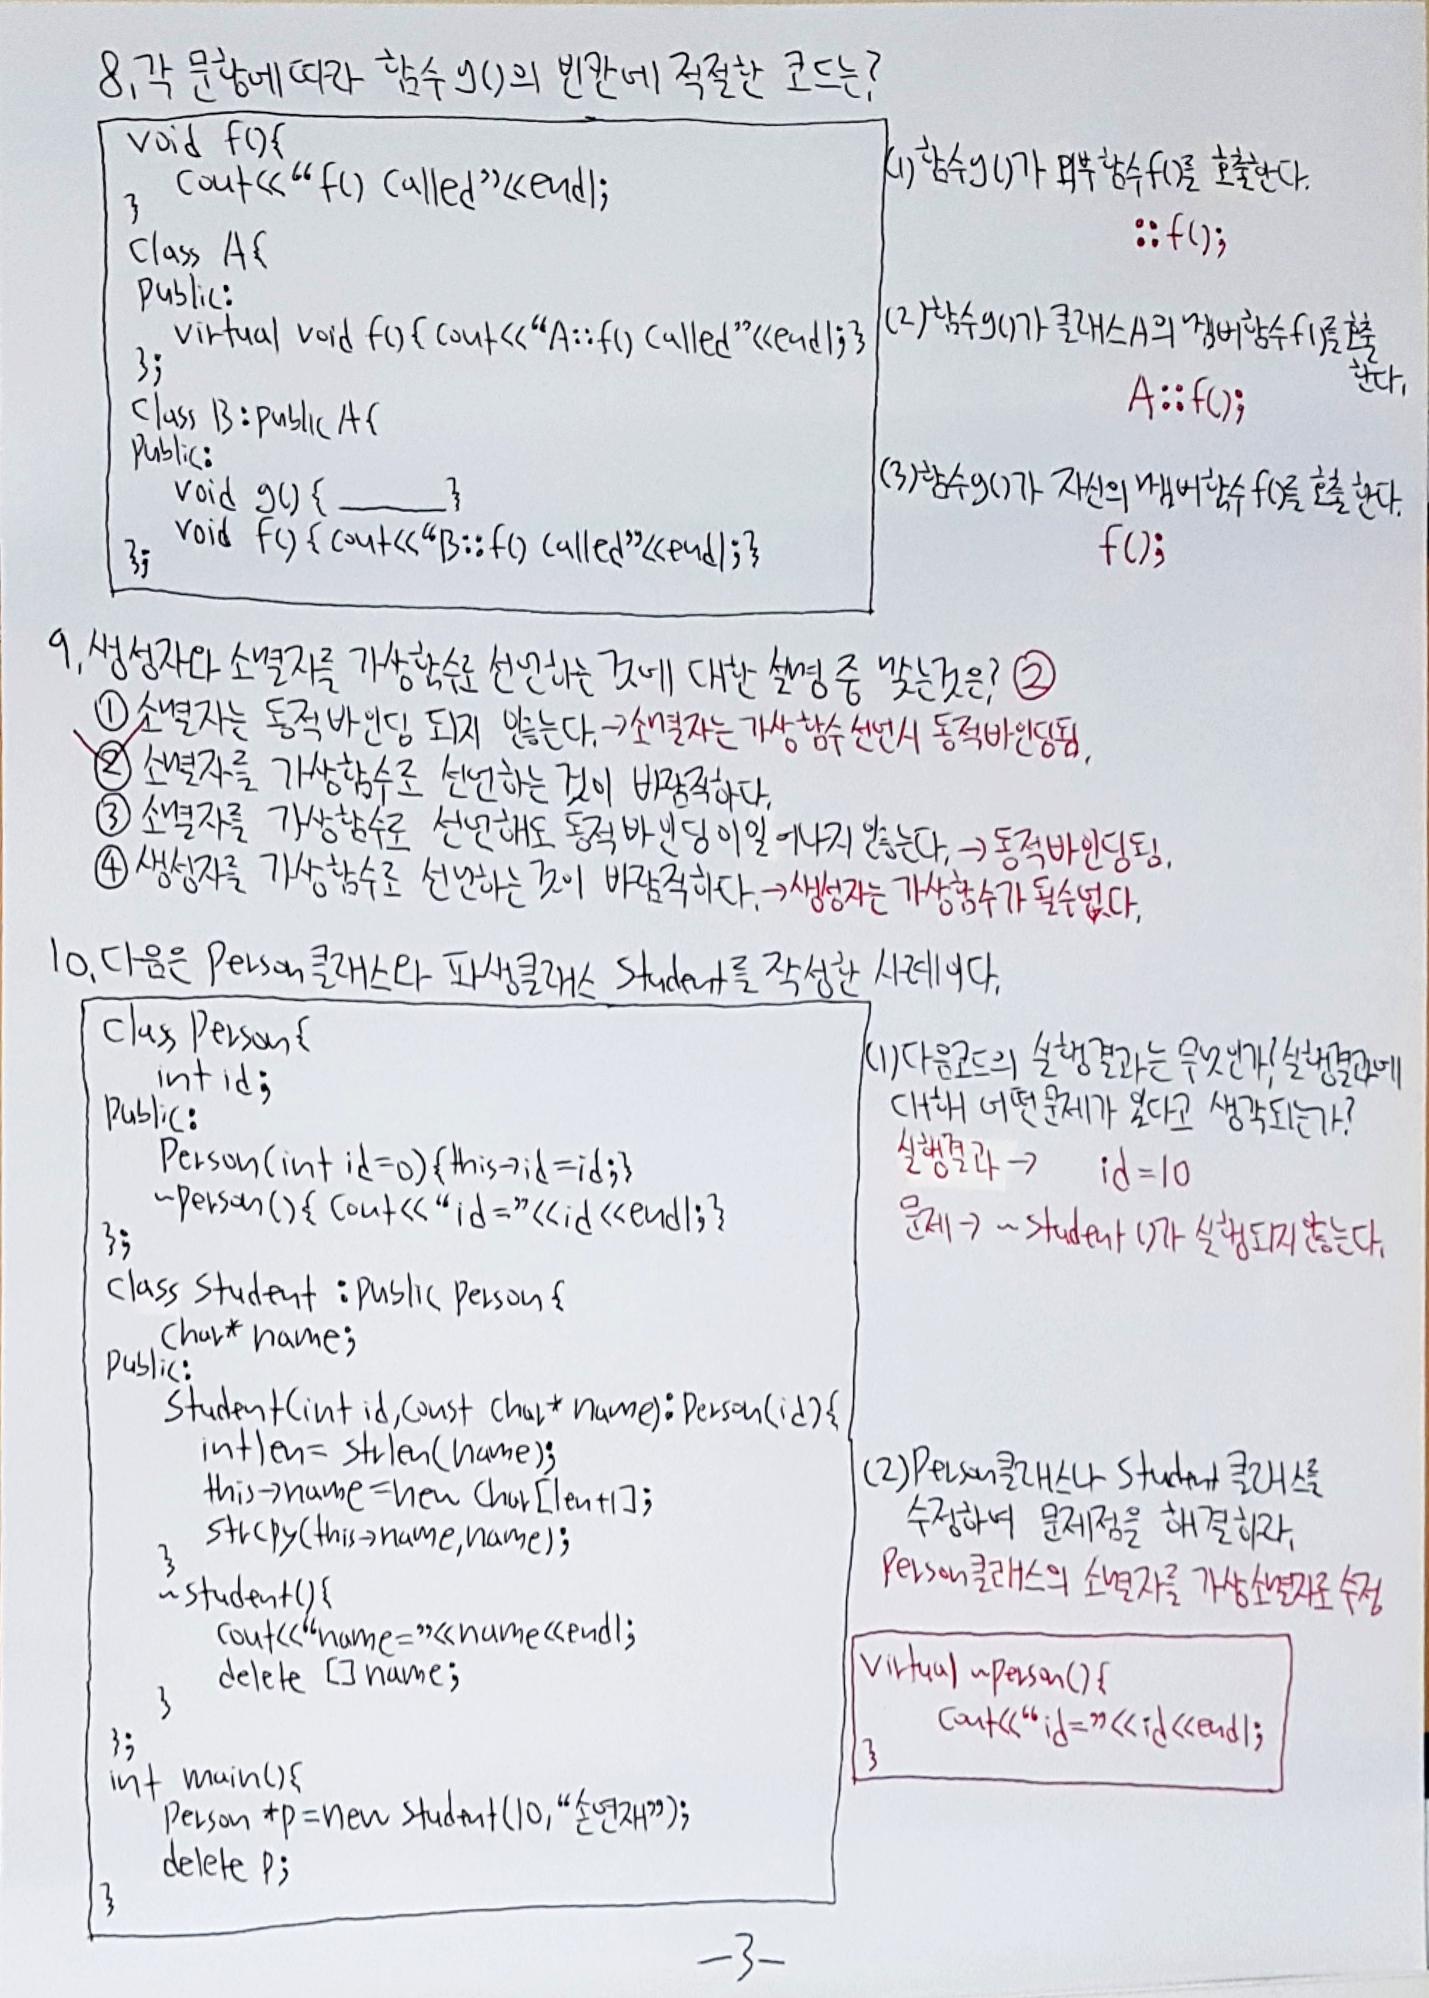 8. 각 문항에 따라 함수 g()의 빈칸에 적절한 코드는?
void f(){
cout<<“f() called”<<endl;
}
class A{
public:
virtual void f(){cout<<“A::f() called”<<endl;}
};
class B:public A{
public:
void g(){ ______}
void f(){cout<<“B::f() called”<<endl;}
};
(1)함수g()가 외부함수f()를 호출한다.
::f();
(2)함수g()가 클래스A의 멤버함수f()를 호출
한다.
A::f();
(3)함수g()가 자신의 멤버함수 f()를 호출한다.
f();
9. 생성자와 소멸자를 가상함수로 선언하는 것에 대한 설명 중 맞는것은? ②
① 소멸자는 동적바인딩 되지 않는다.→소멸자는 가상함수 선언시 동적바인딩됨.
② 소멸자를 가상함수로 선언하는 것이 바람직하다.
③ 소멸자를 가상함수로 선언해도 동적바인딩이일어나지 않는다.→동적바인딩됨.
④ 생성자를 가상함수로 선언하는 것이 바람직하다.→생성자는 가상함수가 될수없다.
10. 다음은 Person클래스와 파생클래스 Student를 작성한 사례이다.
class Person{
int id;
public:
Person(int id=0){this→id=id;}
~person(){cout<<“id=”<<id<<endl;}
};
class Student :public person{
char* name;
public:
Student(int id,const char* name):Person(id){
int len= strlen(name);
this→name=new char[len+1];
strcpy(this→name,name);
}
~student(){
cout<<“name=”<<name<<endl;
delete []name;
}
};
int main(){
Person *p=new student(10,“손연재”);
delete p;
}
(1)다음코드의 실행결과는 무엇인가?실행결과에
대해 어떤문제가 있다고 생각되는가?
실행결과→ id=10
문제→ ~student()가 실행되지않는다.
(2)Person클래스나 Student 클래스를
수정하여 문제점을 해결하라.
Person클래스의 소멸자를 가상소멸자로 수정
virtual ~person(){
cout<<“id=”<<id<<endl;
}
-3-